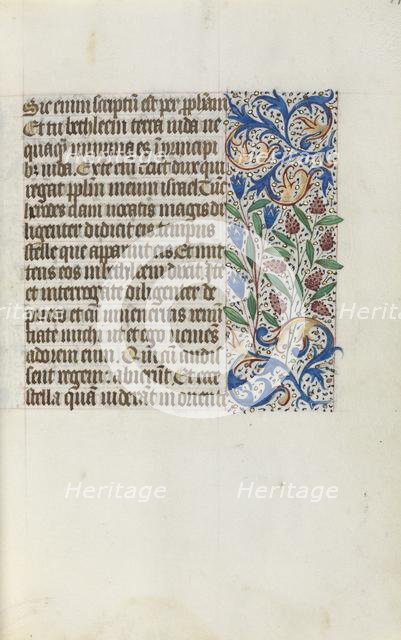 Sic enim scriptū est per prophetam
Et tu bethleem terra iuda ne
quaq̄ minima es in principi
bz iuda. Ex te eni exiet dux qui
regat pplm meum israel Tūc
herodes clam vocatis magis di
ligenter didicit eis tempus
stelle que apparuit eis Et mit
tens eos in bethleem dixit Ite
et interrogate diligenter de
puero et cū inueneritis renū
tiate michi ut et ego veniens
adorem eum Qui cū audis
sent regem abierūt Et ecce
stella quā viderāt in oriente
Heritage Heritage
Images Images
Heritage Heritage
Images Images
Heritage Heritage